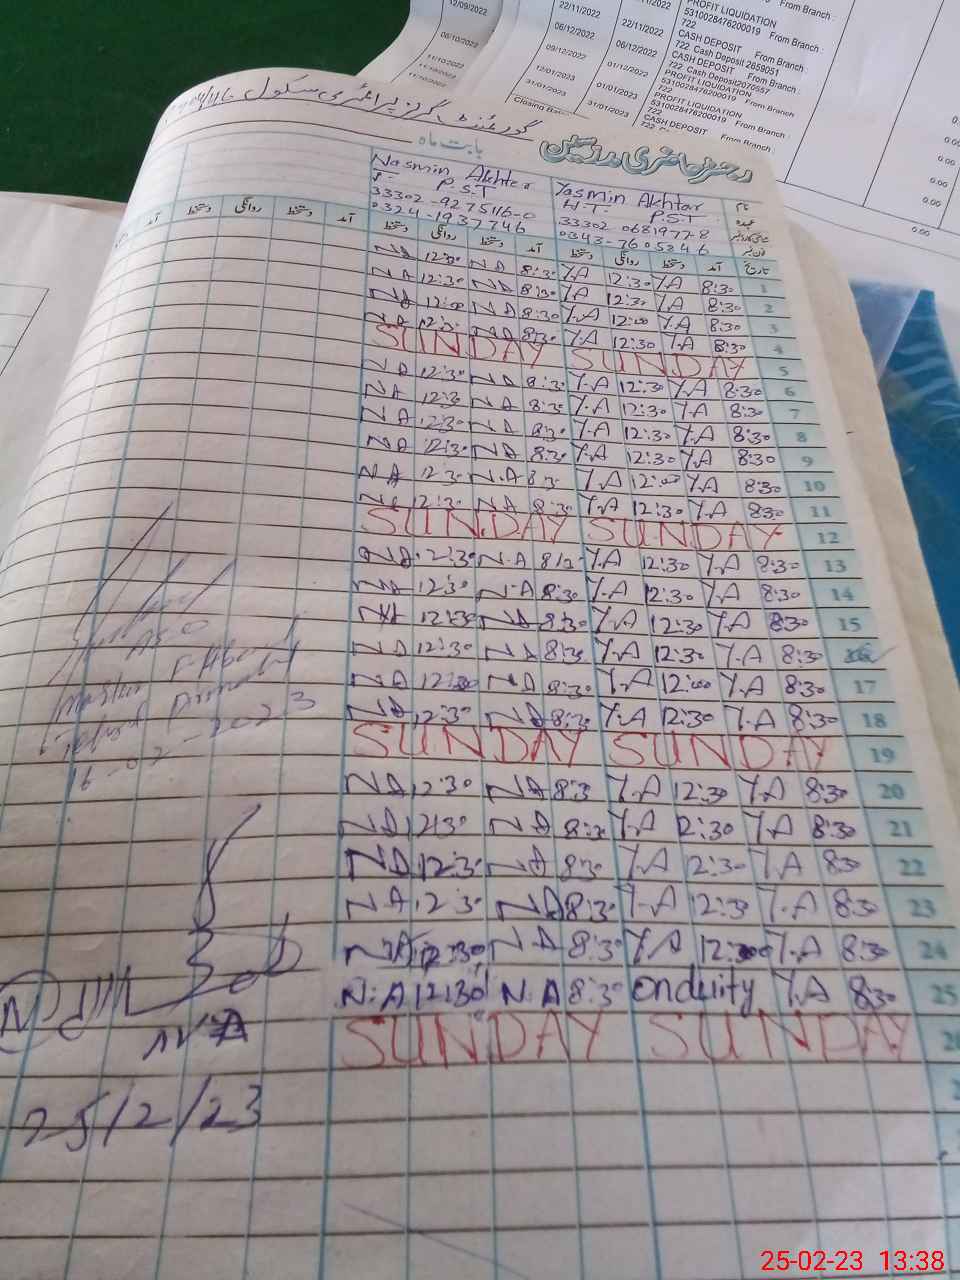 12/09/2022
22/11/2022
PROFIT LIQUIDATION
5310028476200019 From Branch :
722
06/10/2022
06/12/2022
22/11/2022
CASH DEPOSIT From Branch :
722 Cash Deposit 2659051
11/10/2022
09/12/2022
06/12/2022
CASH DEPOSIT From Branch :
722 Cash Deposit2070557
12/01/2023
01/12/2022
PROFIT LIQUIDATION
5310028476200019 From Branch :
722
31/01/2023
01/01/2023
PROFIT LIQUIDATION
5310028476200019 From Branch :
722
31/01/2023
CASH DEPOSIT From Branch :
Closing Balance
0.00
0.00
0.00
0.00
گورنمنٹ گرلز پرائمری سکول
دفتر حاضری مدرسین
بابت ماہ
نام Yasmin Akhtar Nasmin Akhtar
عہدہ H.T. P.S.T P.S.T
33302 0681977-8 33302-9275116-0
0343-7605246 0324-1937746
تاریخ آمد دستخط روانگی دستخط آمد دستخط روانگی دستخط آمد دستخط روانگی دستخط
1 8:30 Y.A 12:30 Y.A 8:30 NA 12:30 NA
2 8:30 Y.A 12:30 Y.A 8:30 NA 12:30 NA
3 8:30 Y.A 12:00 Y.A 8:30 NA 12:00 NA
4 8:30 Y.A 12:30 Y.A 8:30 NA 12:30 NA
5 SUNDAY SUNDAY
6 8:30 Y.A 12:30 Y.A 8:30 NA 12:30 NA
7 8:30 Y.A 12:30 Y.A 8:30 NA 12:30 NA
8 8:30 Y.A 12:30 Y.A 8:30 NA 12:30 NA
9 8:30 Y.A 12:30 Y.A 8:30 NA 12:30 NA
10 8:30 Y.A 12:00 Y.A 8:30 N.A 12:30 NA
11 8:30 Y.A 12:30 Y.A 8:30 NA 12:30 NA
12 SUNDAY SUNDAY
13 8:30 Y.A 12:30 Y.A 8:30 N.A 12:30 NA
14 8:30 Y.A 12:30 Y.A 8:30 N.A 12:30 NA
15 8:30 Y.A 12:30 Y.A 8:30 NA 12:30 NA
16 8:30 Y.A 12:30 Y.A 8:30 NA 12:30 NA
17 8:30 Y.A 12:00 Y.A 8:30 NA 12:30 NA
18 8:30 Y.A 12:30 Y.A 8:30 NA 12:30 NA
19 SUNDAY SUNDAY
20 8:30 Y.A 12:30 Y.A 8:30 NA 12:30 NA
21 8:30 Y.A 12:30 Y.A 8:30 NA 12:30 NA
22 8:30 Y.A 12:30 Y.A 8:30 NA 12:30 NA
23 8:30 Y.A 12:30 Y.A 8:30 NA 12:30 NA
24 8:30 Y.A 12:30 Y.A 8:30 N.A 12:30 NA
25 8:30 Y.A onduity 8:30 N.A 12:30 N.A
26 SUNDAY SUNDAY
AEO
16-02-2023
25/2/23
25-02-23 13:38